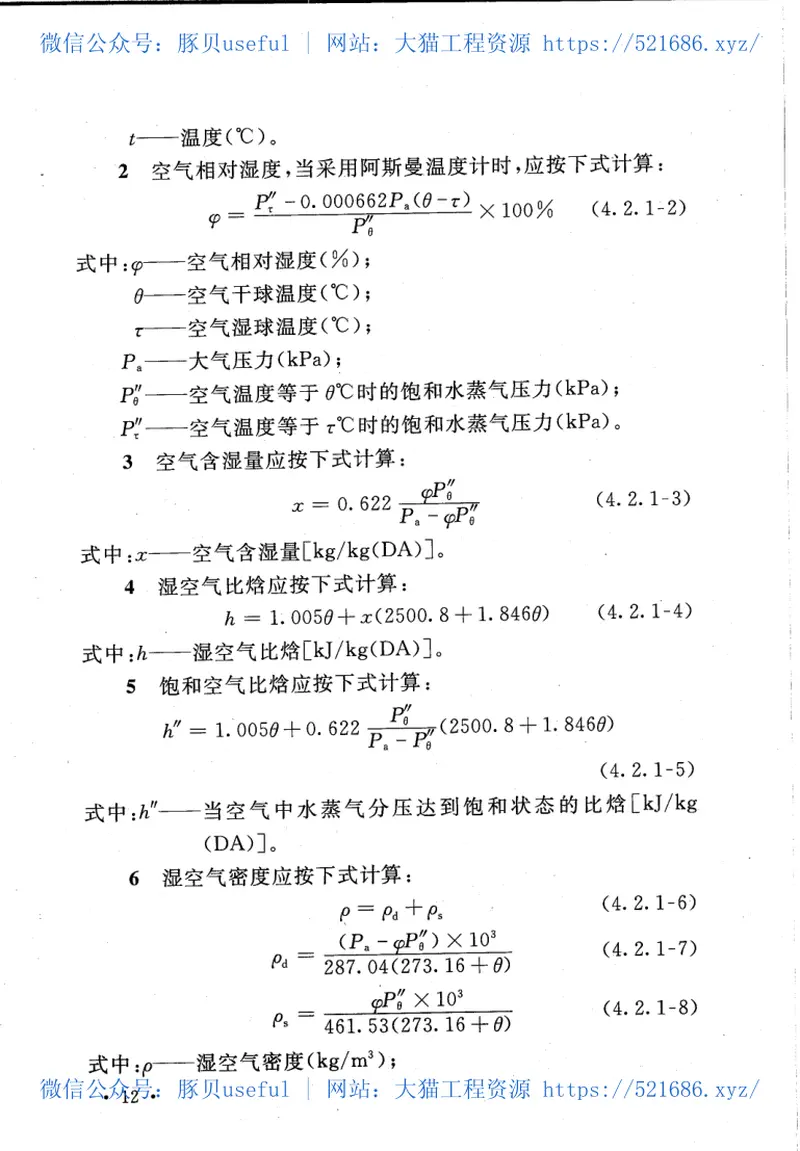 微信公众号：豚贝useful | 网站：大猫工程资源 https://521686.xyz/
t——温度(℃)。
2 空气相对湿度,当采用阿斯曼温度计时,应按下式计算：
φ = (P″τ − 0.000662Pa(θ−τ)) / P″θ × 100% (4.2.1-2)
式中:φ——空气相对湿度(%)；
θ——空气干球温度(℃)；
τ——空气湿球温度(℃)；
Pa——大气压力(kPa)；
P″θ——空气温度等于θ℃时的饱和水蒸气压力(kPa)；
P″τ——空气温度等于τ℃时的饱和水蒸气压力(kPa)。
3 空气含湿量应按下式计算：
x = 0.622 φP″θ / (Pa − φP″θ) (4.2.1-3)
式中:x——空气含湿量[kg/kg(DA)]。
4 湿空气比焓应按下式计算：
h = 1.005θ + x(2500.8 + 1.846θ) (4.2.1-4)
式中:h——湿空气比焓[kJ/kg(DA)]。
5 饱和空气比焓应按下式计算：
h″ = 1.005θ + 0.622 P″θ / (Pa − P″θ) (2500.8 + 1.846θ)
(4.2.1-5)
式中:h″——当空气中水蒸气分压达到饱和状态的比焓[kJ/kg
(DA)]。
6 湿空气密度应按下式计算：
ρ = ρd + ρs (4.2.1-6)
ρd = (Pa − φP″θ) × 10³ / 287.04(273.16 + θ) (4.2.1-7)
ρs = φP″θ × 10³ / 461.53(273.16 + θ) (4.2.1-8)
式中:ρ——湿空气密度(kg/m³)；
微信公众号：豚贝useful | 网站：大猫工程资源 https://521686.xyz/
· 12 ·